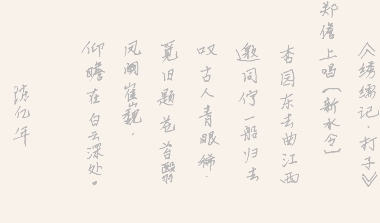 《绣襦记·打子》
郑儋上唱〔新水令〕
杏园东去曲江西
邀同伫一船归去
叹古人青眼稀.
觅旧题苍苔翳
凤阙崔巍.
仰瞻在白云深处。
陈亿年